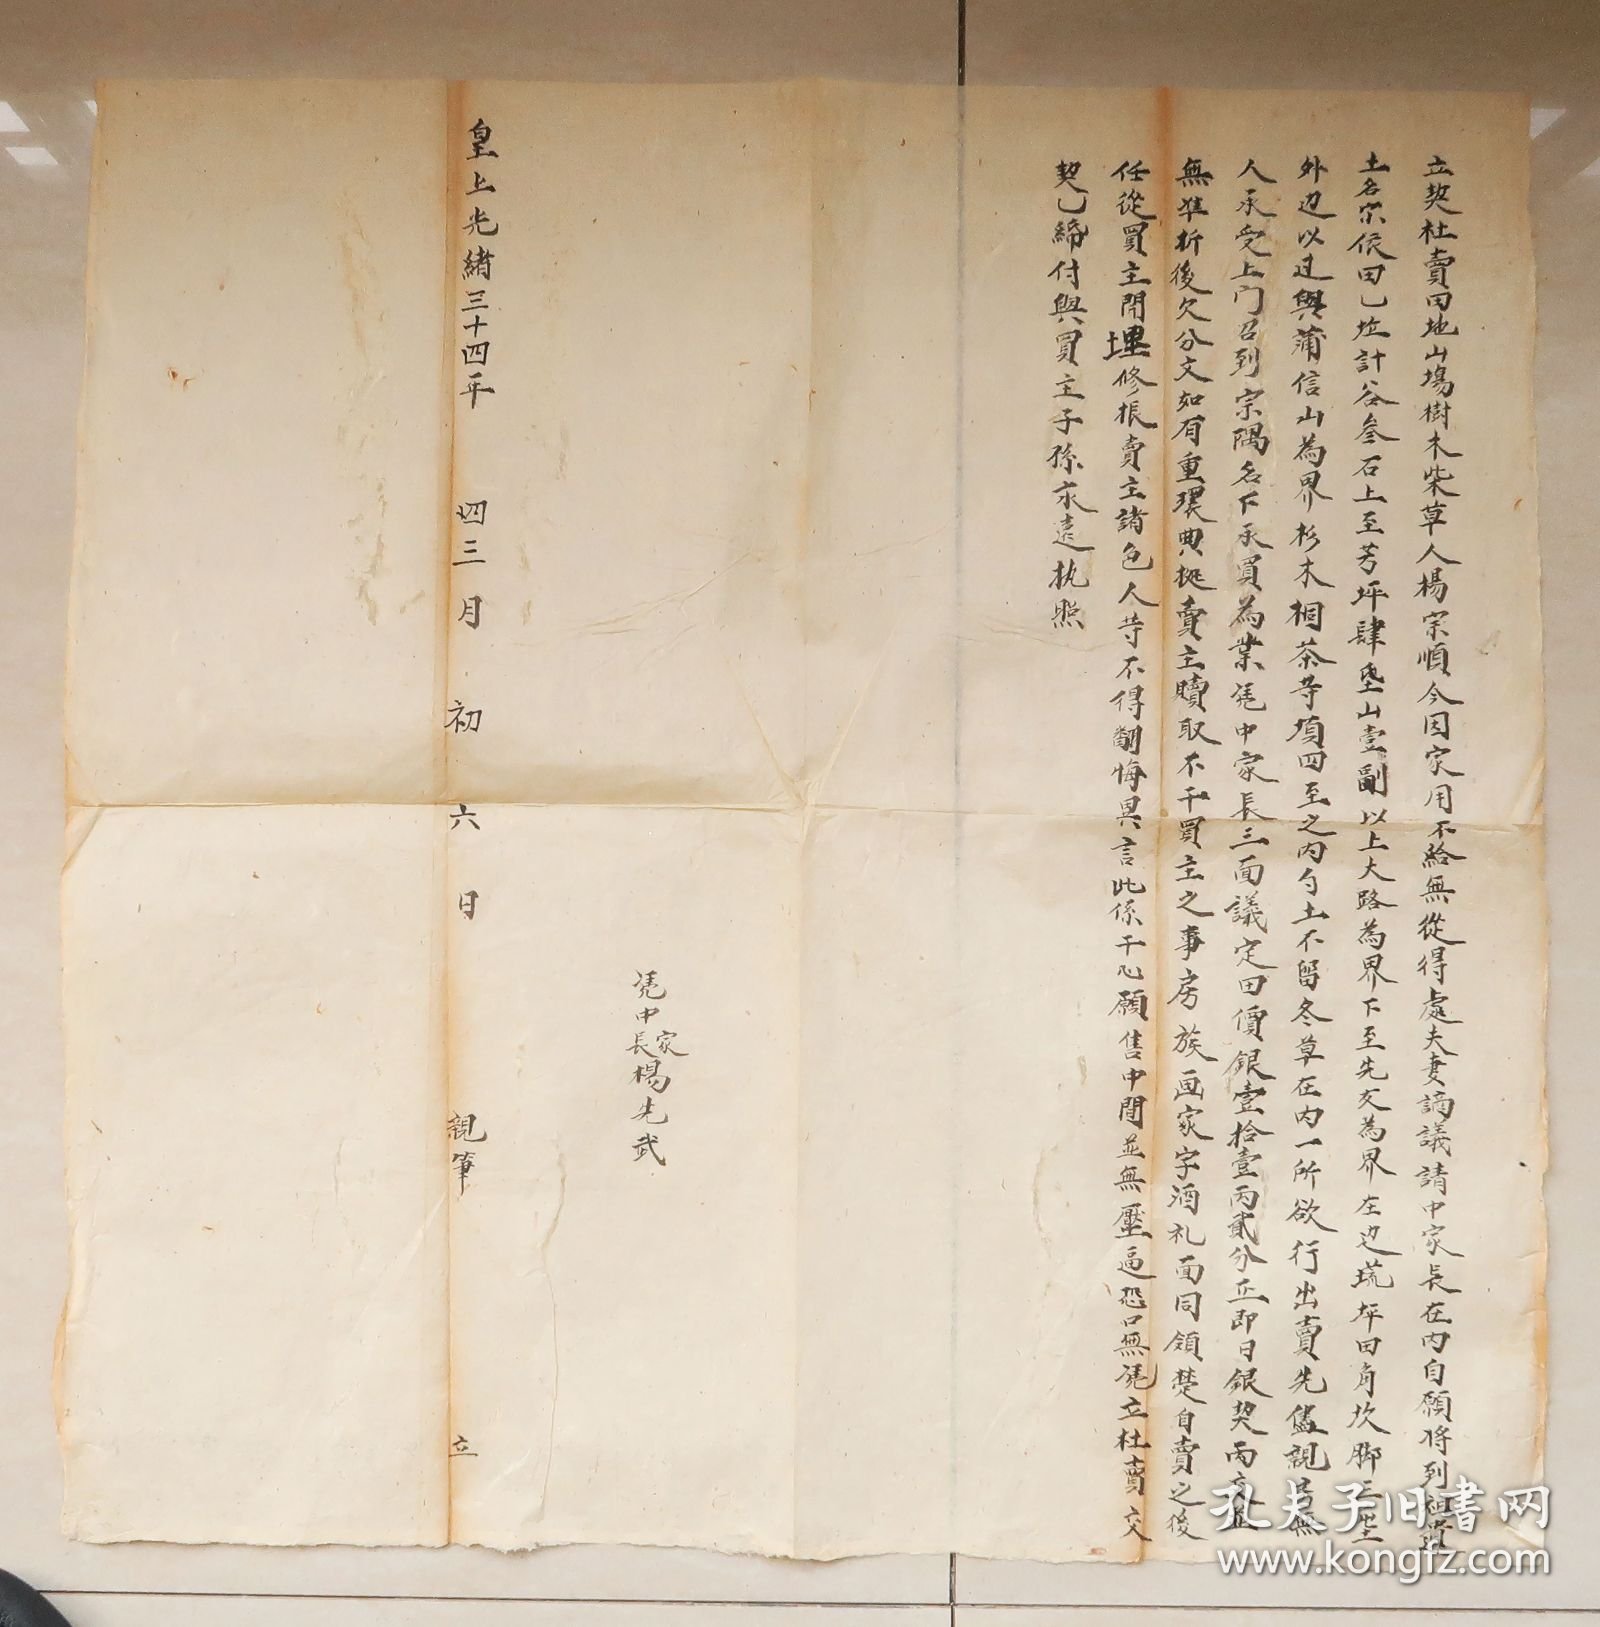 立契杜賣田地山塲樹木柴草人楊宗順今因家用不給無從得處夫妻謫議請中家長在內自願将列祖遺
土名宗侯田乙坵計谷叁石上至芳坪肆垦山壹副以上大路為界下至先交為界左边㼆坪田角坎脚三坐
外边以过與蒲信山為界杉木桐茶等項四至之内勻土不畱冬草在内一所欲行出賣先儘親房無
人承受上门召到宗隅名下承買為業凴中家長三面議定田價銀壹拾壹両貳分正即日銀契両交並
無準折後欠分文如有重環典挺賣主贖取不干買主之事房族画家字酒礼面同領楚自賣之後
任從買主開埋修根賣主諸色人等不得翻悔異言此係干心願售中間並無壓逼恐口無凴立杜賣交
契乙締付與買主子孫永遠执照
凴中家長楊先武
皇上光緒三十四年 四三月 初六日 親筆 立
孔夫子旧書网
www.kongfz.com